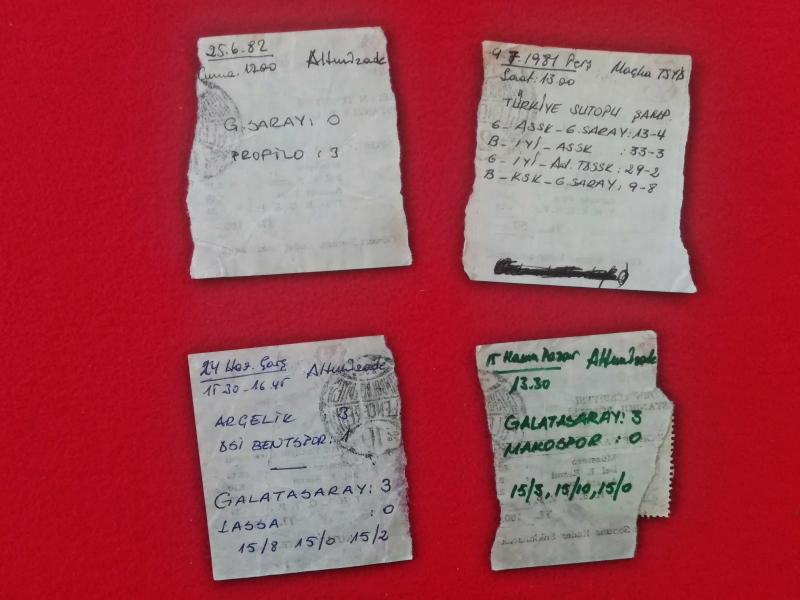 25.6.82
Cuma. 17.00 Altunizade
G.SARAY: 0
PROFİLO : 3
9.7.1981 Perş Maçka TSYD
Saat: 13.00
TÜRKİYE SUTOPU ŞAMP.
G- ASSK - G.SARAY: 13-4
B- IYİ - ASSK : 33-3
G- IYİ - Ad. TBSSK: 29-2
B- KSK - G.SARAY: 9-8
24 Haz. Çarş Altunizade
15.30-16.45
ARÇELİK 3
DSİ BENTSPOR: 1
GALATASARAY: 3
LASSA : 0
15/8 15/0 15/2
15 Pazar Altunizade
13.30
GALATASARAY: 3
MAKOSPOR : 0
15/5, 15/10, 15/0